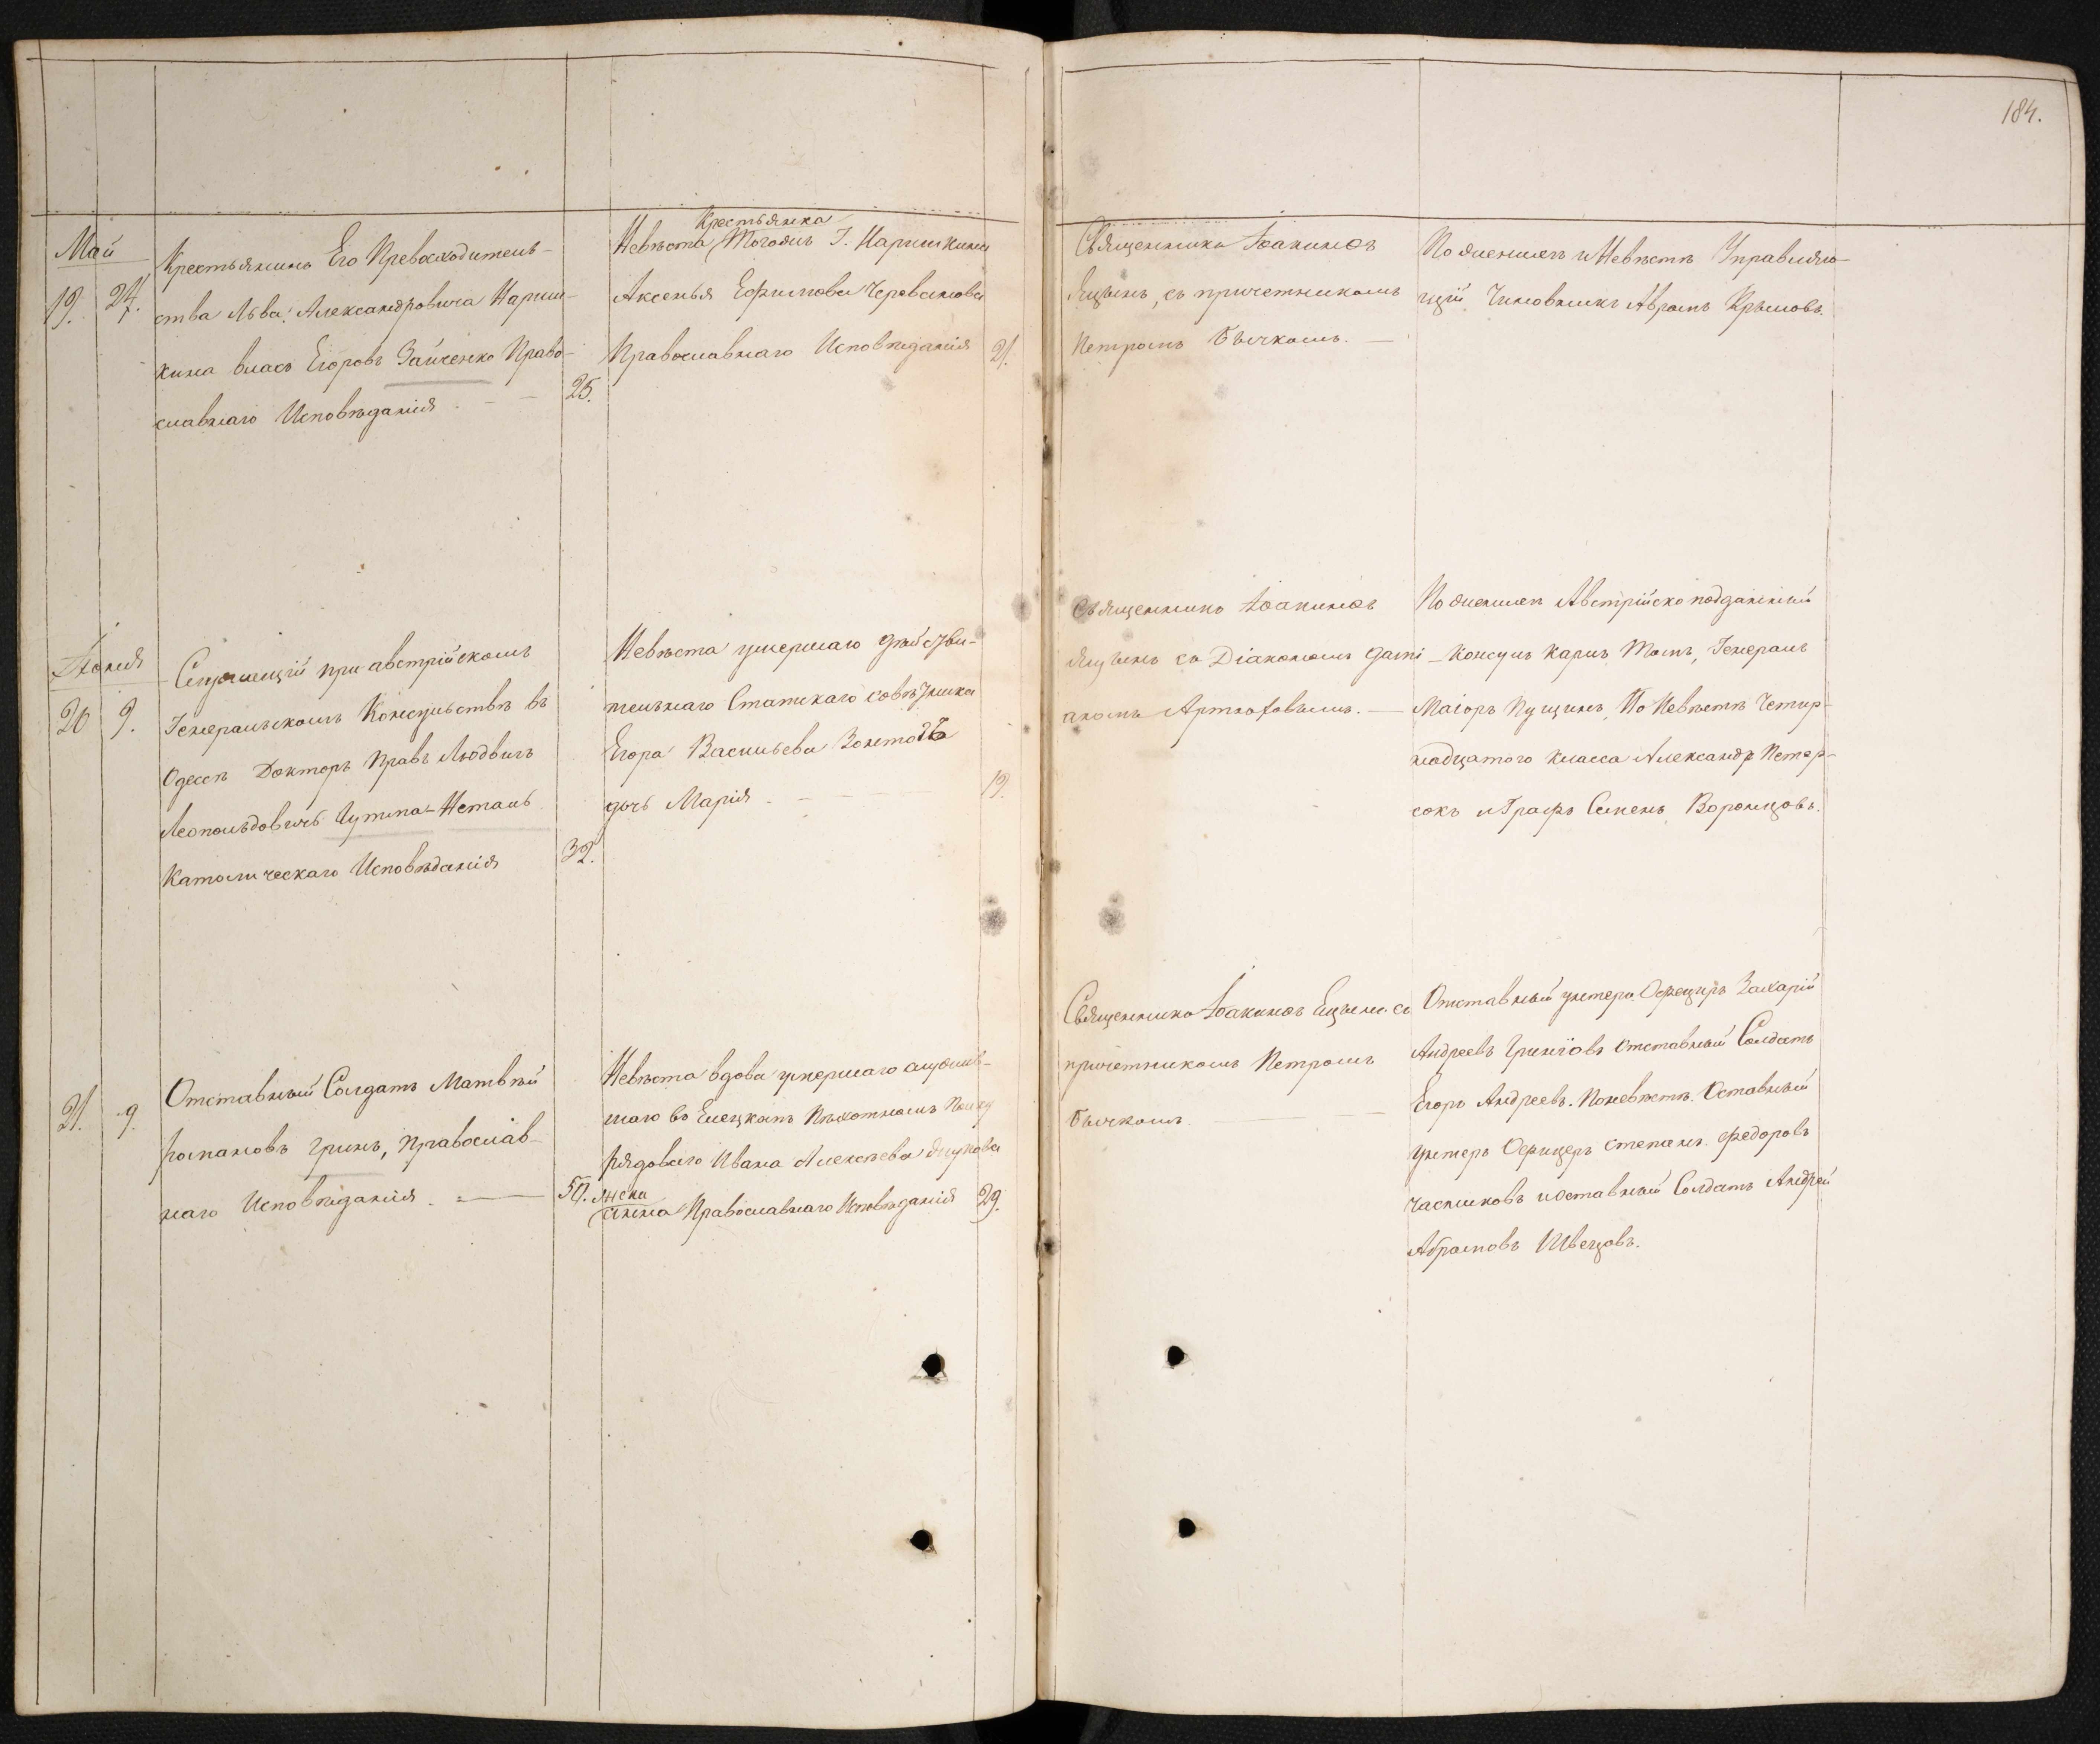 184.
Май
19. 24.
Крестьянинъ Его Превосходитель-
ства Льва Александровича Нарыш-
кина Власъ Егоровъ Зайченко Право-
славнаго Исповѣданія. — — 25.
Крестьянка
Невѣста Тогоже Г. Нарышкина
Аксенья Ефимова Череванова
Православнаго Исповѣданія 21.
Священникъ Іоакинѳъ
Яцынъ, съ причетникомъ
Петромъ Бычкомъ. —
По женихѣ и Невѣстѣ Управляю-
щій Чиновникъ Аврамъ Крыловъ.
Іюня
20 9.
Служащій при австрійскомъ
Генеральскомъ Консульствѣ въ
Одессѣ Докторъ Правъ Людвигъ
Леопольдовичъ Гутма-Нсталь
Католическаго Исповѣданія 32.
Невѣста умершаго дѣйстви-
тельнаго Статскаго совѣтника
Егора Васильева Зонтагъ
дочь Марія. — — — 19.
Священникъ Іоакинѳъ
Яцынъ со Діакономъ Дамі-
аномъ Артюховымъ. —
По женихѣ Австрійско подданный
Консулъ Карлъ Томъ, Генералъ
Маіоръ Пущинъ, По Невѣстѣ Четыр-
надцатого класса Александръ Петер-
сонъ и Графъ Семенъ Воронцовъ.
21. 9.
Отставный Солдатъ Матвѣй
Романовъ Гринъ, Православ-
наго Исповѣданія. — 50.
Невѣста вдова умершаго служив-
шаго въ Елецкомъ Пѣхотномъ Полку
Рядоваго Ивана Алексѣева
жена
Анна Православнаго Исповѣданія 29.
Священникъ Іоакинѳъ Яцынъ со
причетникомъ Петромъ
Бычкомъ. —
Отставный унтеръ Офицеръ Захарій
Андреевъ Отставный Солдатъ
Егоръ Андреевъ. Поневѣстѣ. Оставный
унтеръ Офицеръ Степанъ. Федоровъ
Часниковъ и оставный Солдатъ Андрей
Абрамовъ Швецовъ.